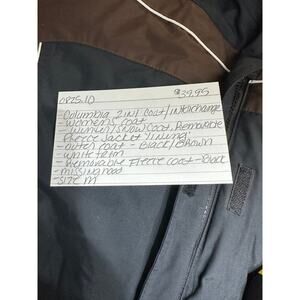 0825.10 $39.95
- Columbia 2 in 1 Coat/Interchange
- Women's Coat
- Winter/Snow Coat, Removable
Fleece Jacket 'lining'
- outer coat - Black/Brown
- white trim
- Removable Fleece coat - Black
- missing hood
- size M